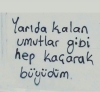 Yarıda kalan
umutlar gibi
hep kaçarak
büyüdüm.